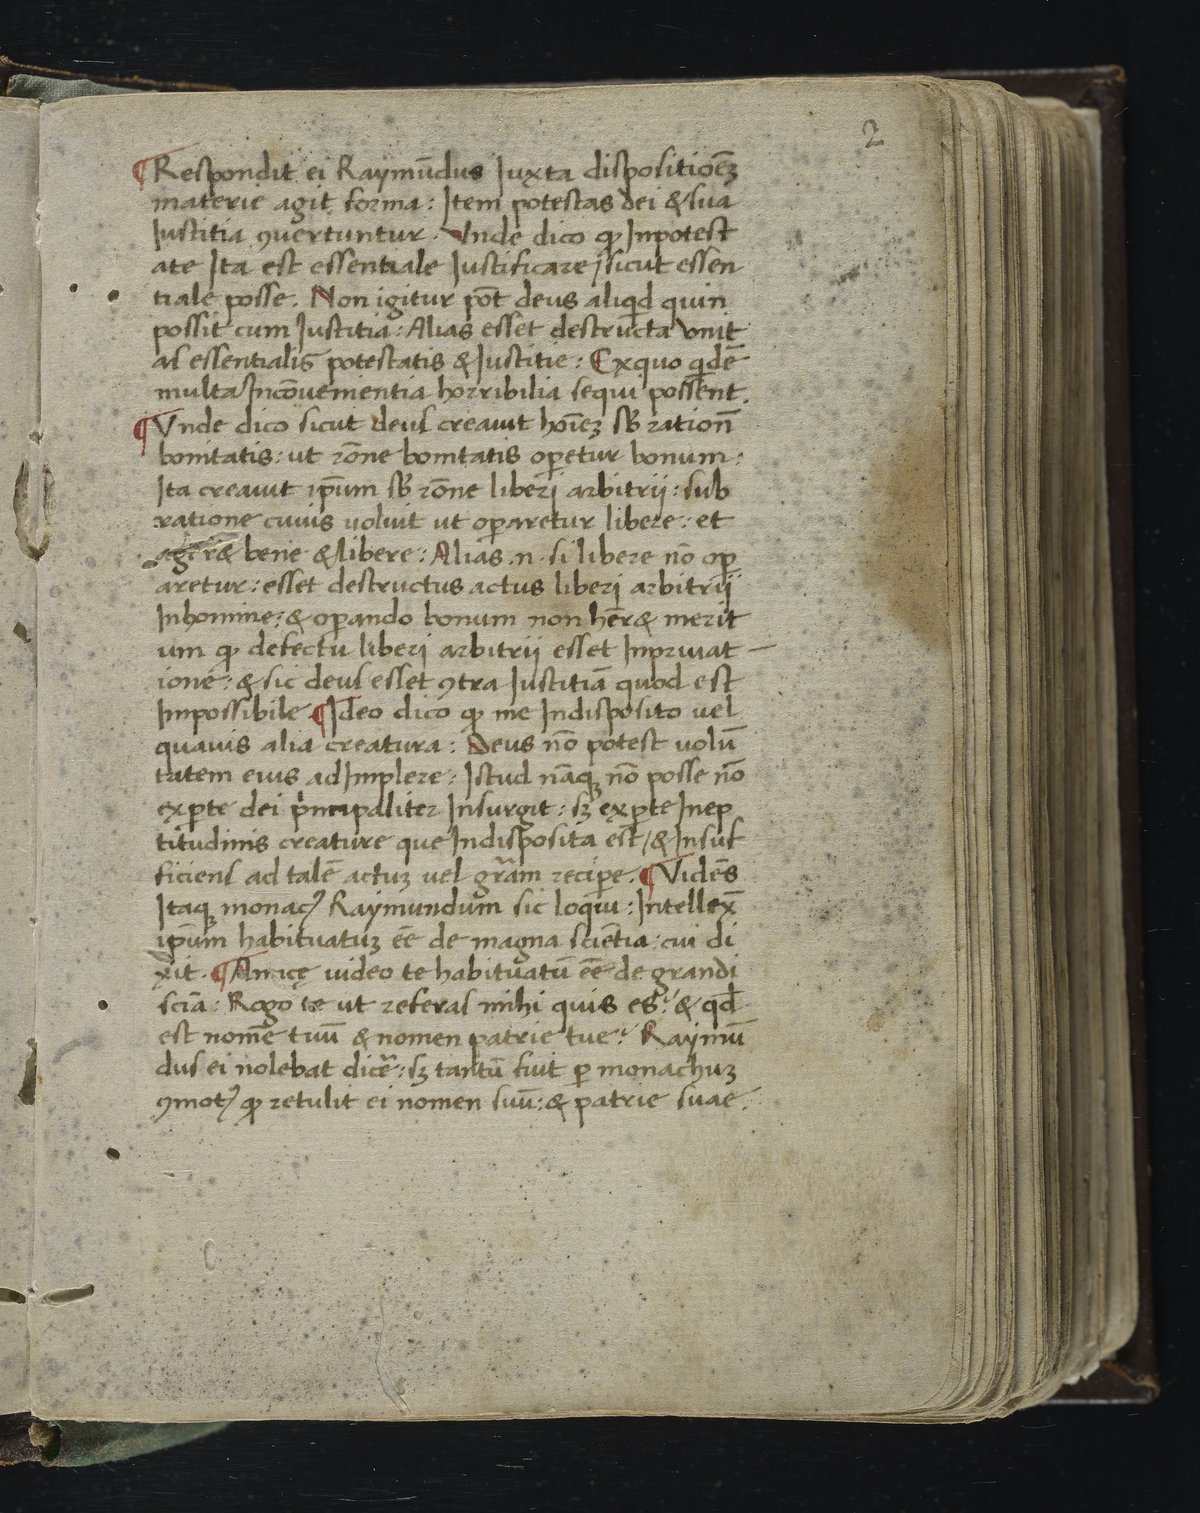 2
¶ Respondit ei Raymu̅dus Juxta dispositioe̅ꝫ
materie agit forma: Item potestas dei & sua
Justitia ꝯuertuntur. Vnde dico ꝙ Inpotest
ate Ita est essentiale Justificare / sicut essen
tiale posse. Non igitur po̅t deus aliqd quin
possit cum Justitia: Alias esset destructa vnit
as essentialis potestatis & Justitie: Exquo qde̅
multa Inco̅uenientia horribilia sequi possent.
¶ Vnde dico sicut deus creauit hoi̅eꝫ sb̅ ration̅
bonitatis: ut ro̅ne bonitatis oꝑetur bonum:
Ita creauit ip̅um sb̅ ro̅ne liberi arbitrii: sub
ratione cuius uoluit ut oꝑaretur libere: et
ager& bene & libere: Alias .n. si libere no̅ oꝑ
aretur: esset destructus actus liberi arbitrii
Inhomine: & oꝑando bonum non he̅r& merit
um ꝙ defectu liberi arbitrii esset Inpriuat
ione: & sic deus esset ꝯtra Justitia̅ quod est
Impossibile. ¶ Ideo dico ꝙ me Indisposito uel
quauis alia creatura: Deus no̅ potest uolu̅
tatem eius adImplere: Istud na̅qꝫ no̅ posse no̅
exꝑte dei principaliter Insurgit: sꝫ exꝑte Inep
titudinis creature que Indisposita est / & Insuf
ficiens ad tale̅ actuꝫ uel gra̅m reciꝑe. ¶ Vide̅s
Itaqꝫ monacꝰ Raymundum sic loqui: Intellex̅
ip̅um habituatuꝫ ee̅ de magna scie̅tia: cui di
xit. ¶ Amice uideo te habituatu̅ ee̅ de grandi
scia̅: Rogo te ut referas mihi quis es? & qd̅
est nome̅ tuu̅ & nomen patrie tue? Raymu̅
dus ei nolebat dice̅: sꝫ tantu̅ fuit ꝑ monachuꝫ
ꝯmotꝰ ꝙ retulit ei nomen suu̅: & patrie suae.